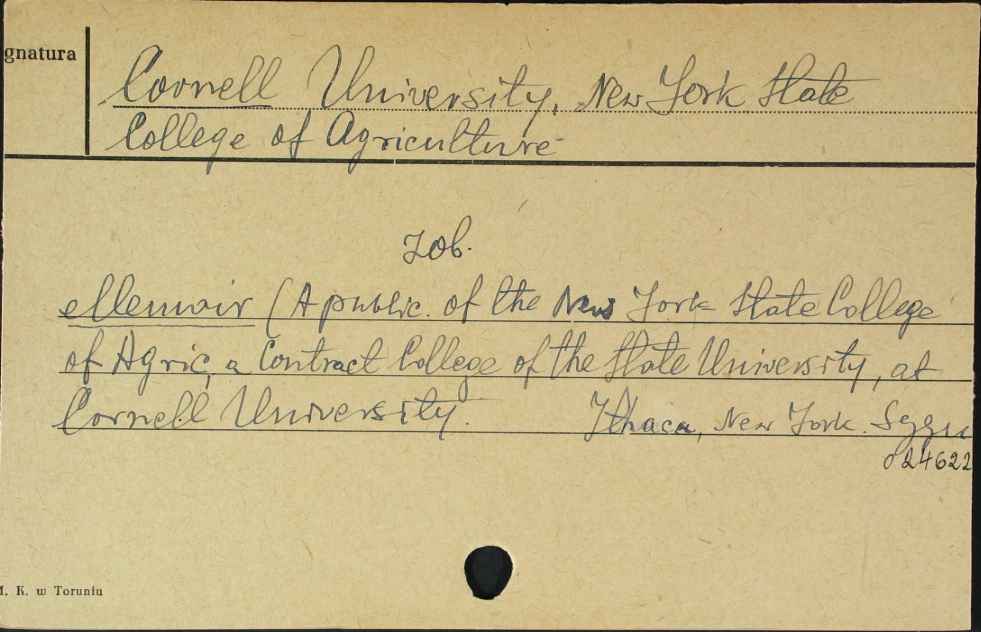 gnatura
Cornell University, New York State
College of Agriculture
zob.
Memoir (A public. of the New York State College
of Agric, a Contract College of the State University, at
Cornell University. Ithaca, New York. Sygn
024622
K. w Toruniu